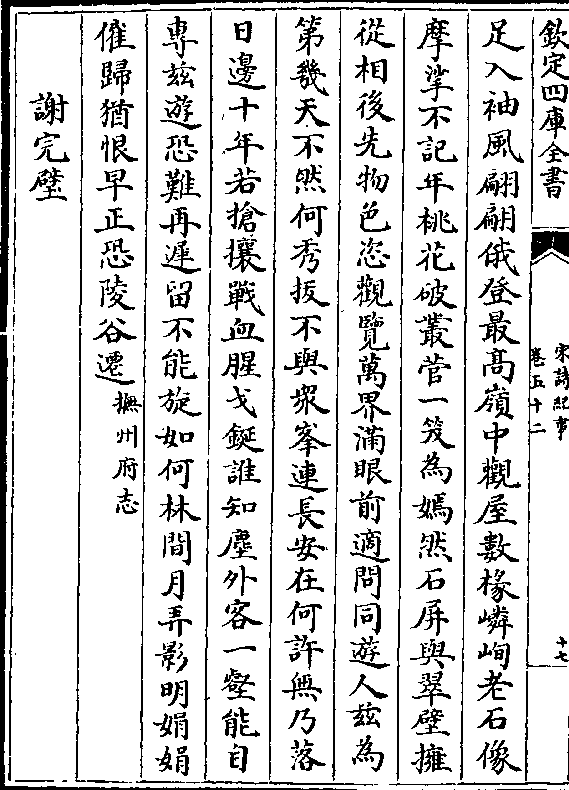 欽定四庫全書
宋詩紀事
卷五十二
十七
足入袖風翩翩俄登最高嶺中觀屋數椽嶙峋老石像
摩挲不記年桃花破叢菅一笑為嫣然石屏與翠壁擁
從相後先物色恣觀覽萬界滿眼前適問同遊人兹為
第幾天不然何秀拔不與衆峯連長安在何許無乃落
日邊十年若搶攘戰血腥戈鋋誰知塵外客一壑能自
專兹遊恐難再遲留不能旋如何林間月弄影明娟娟
催歸猶恨早正恐陵谷遷撫州府志
謝完璧